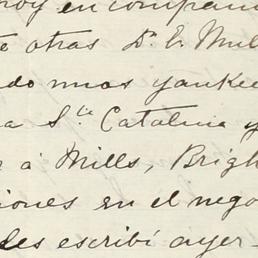 hoy en compañi
te otras Dr. E. Mill
do unos yankee
a Sta Catalina y
r á Mills, Brigh
iones en el nego
les escribí ayer-